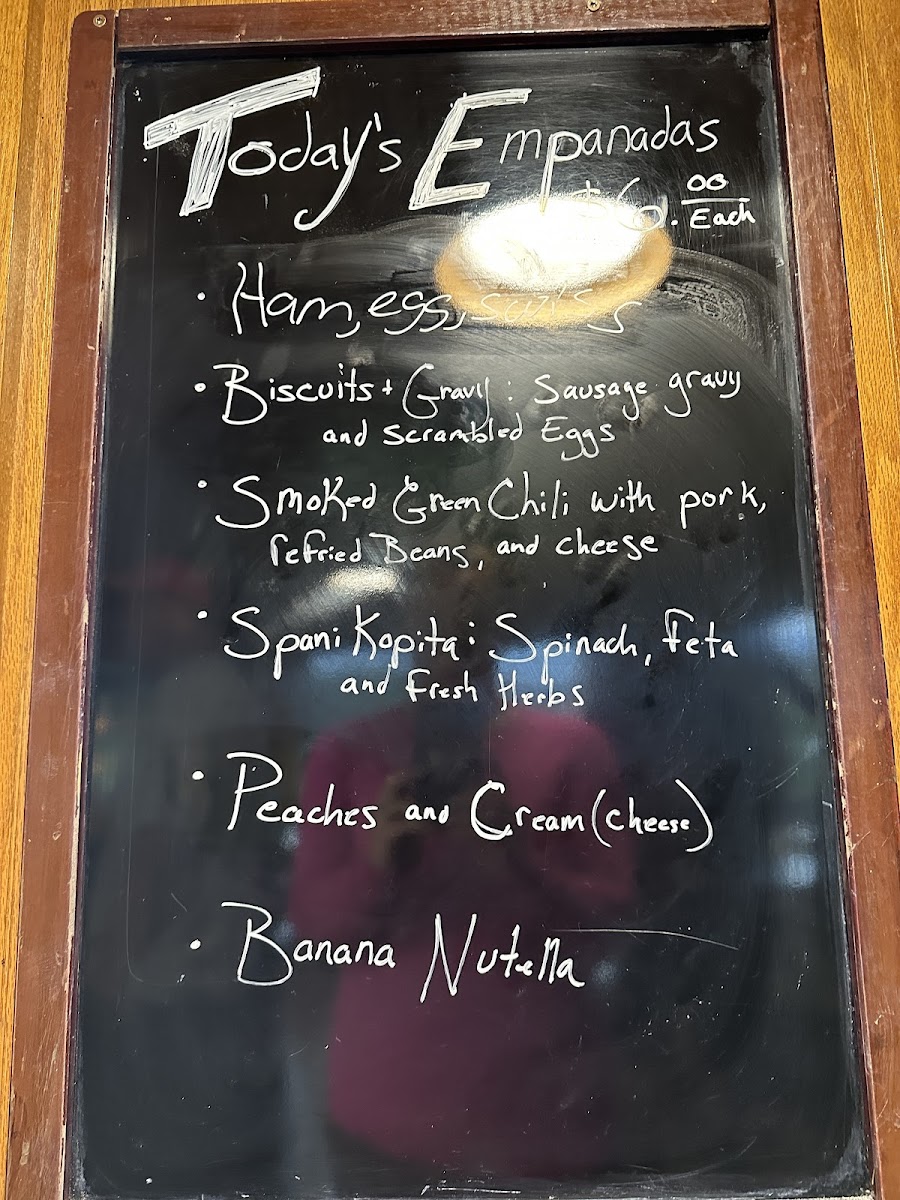 Today's Empanadas
$6.00 Each
• Ham, egg,
• Biscuits + Gravy: Sausage gravy
and Scrambled Eggs
• Smoked Green Chili with pork,
refried Beans, and cheese
• Spanikopita: Spinach, feta
and fresh Herbs
• Peaches and Cream (cheese)
• Banana Nutella